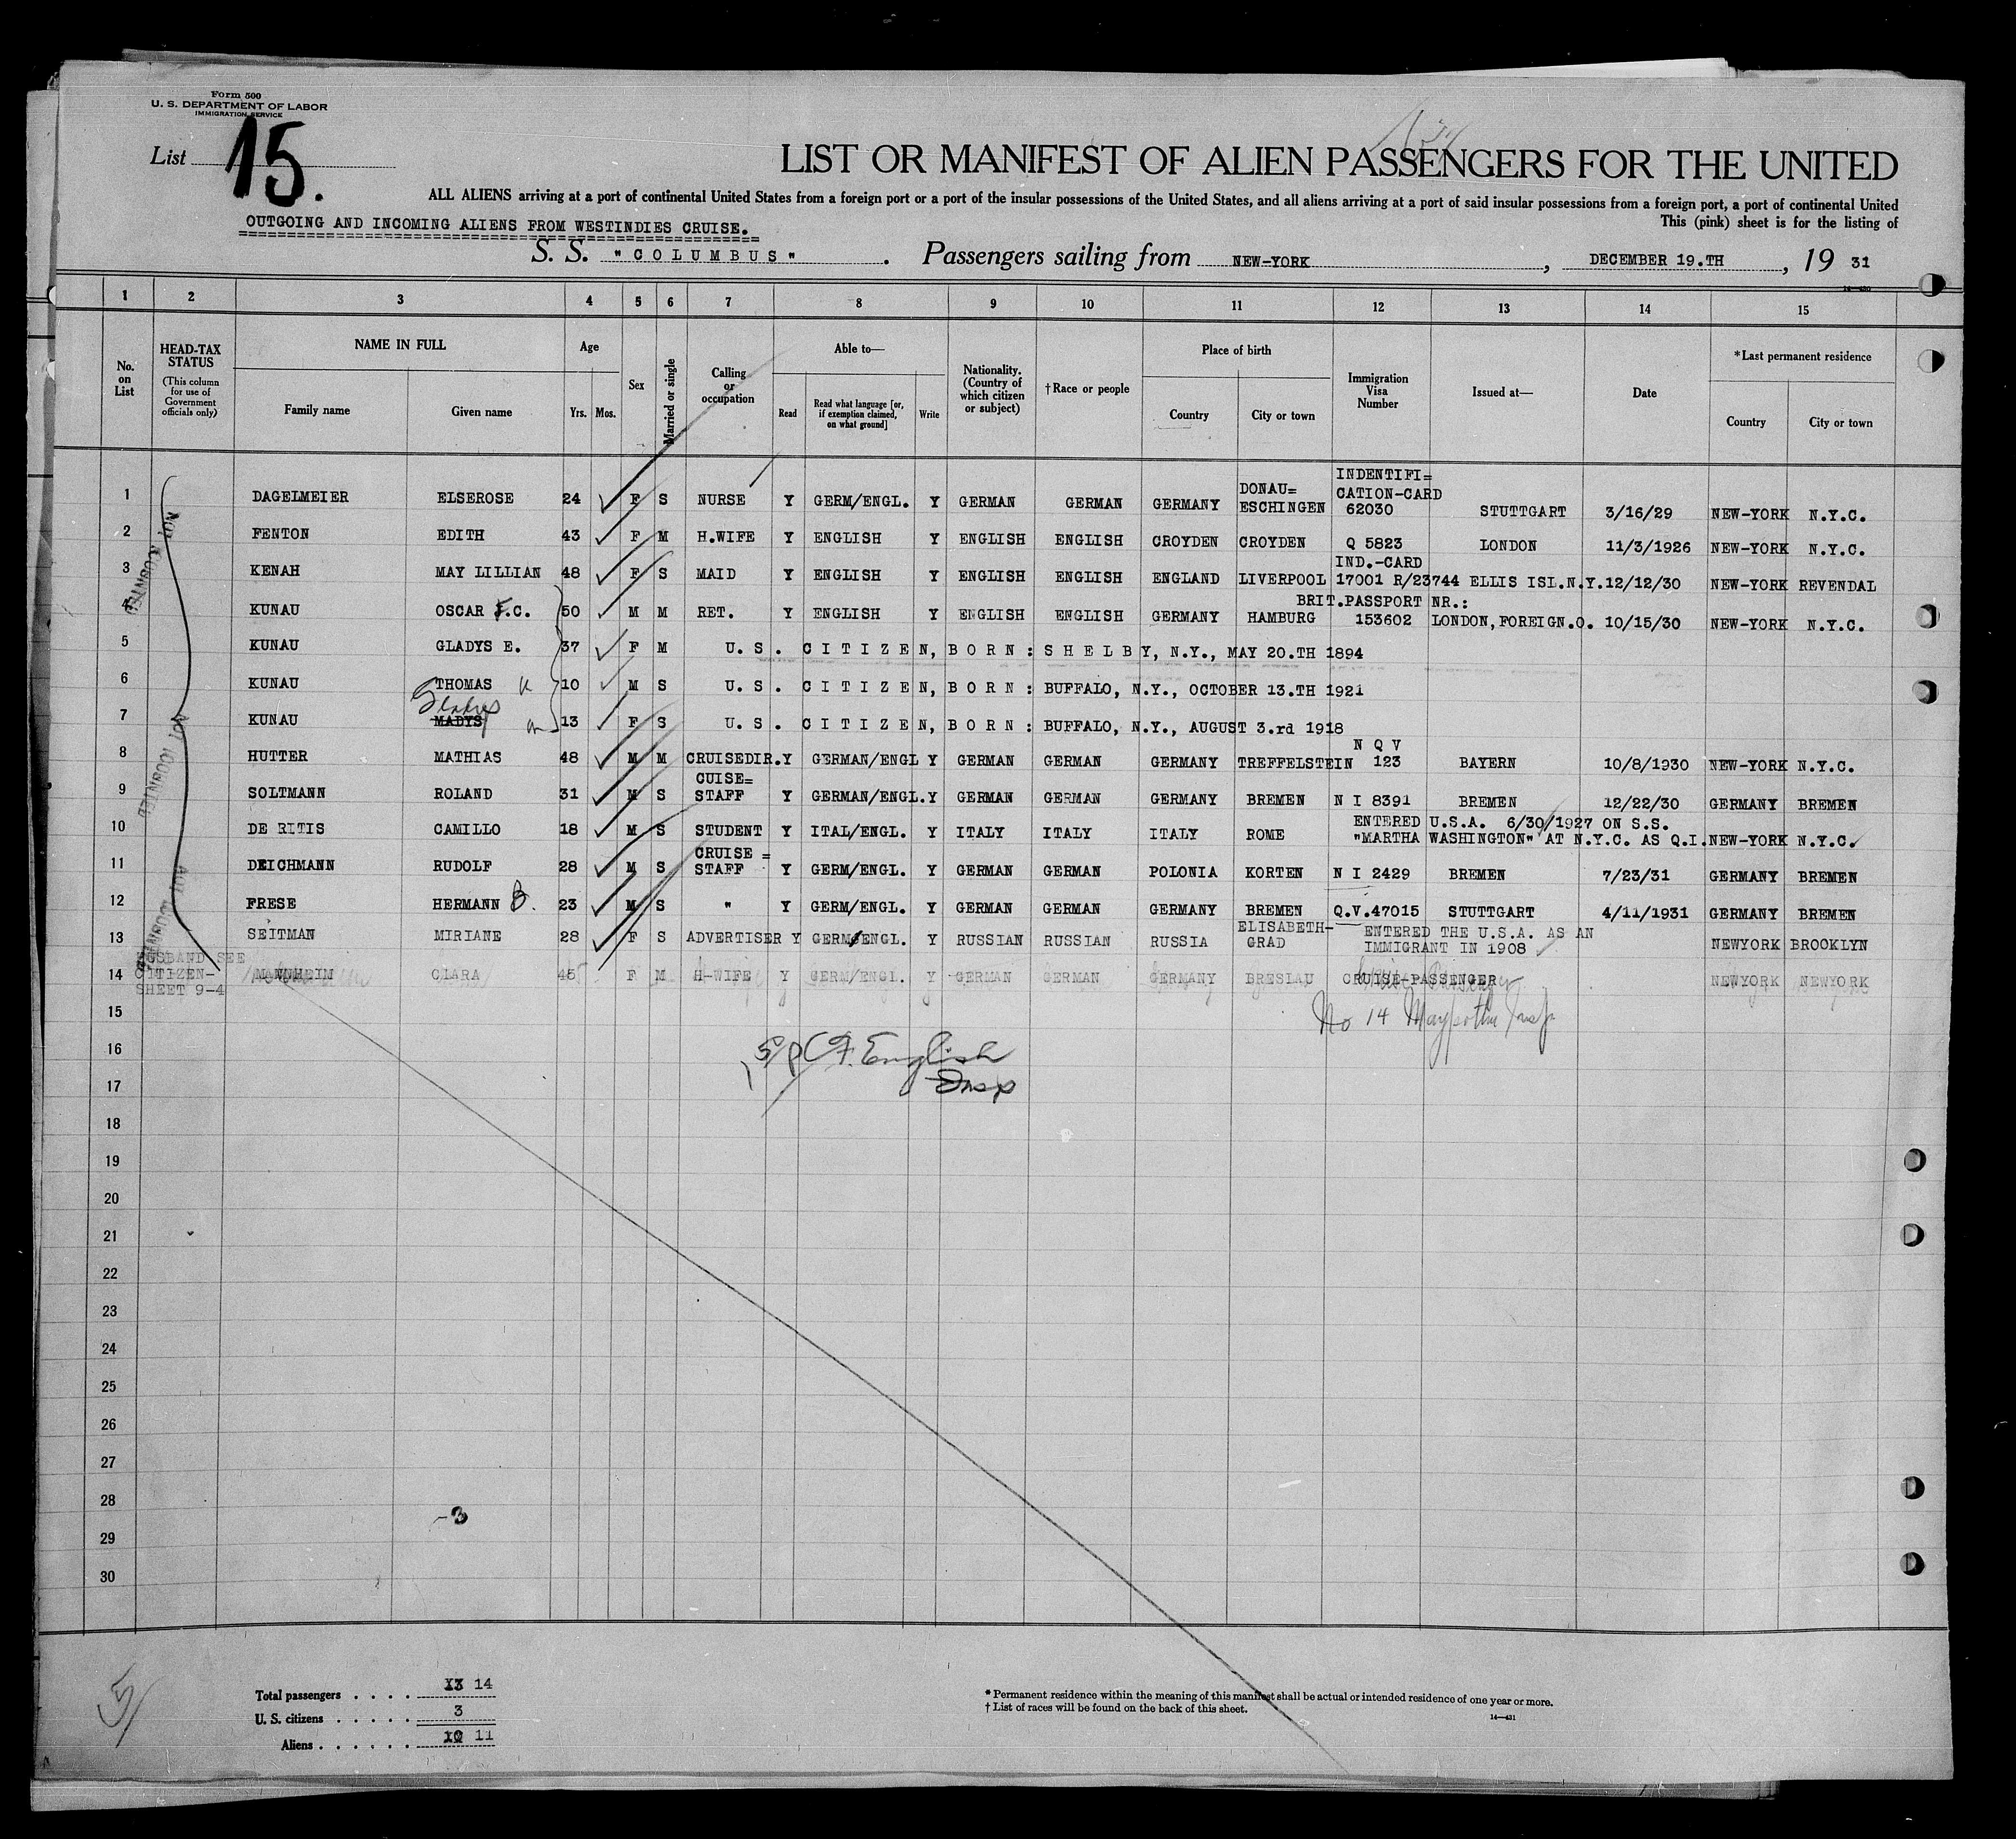 Form 500
U. S. DEPARTMENT OF LABOR
IMMIGRATION SERVICE
List 15.
LIST OR MANIFEST OF ALIEN PASSENGERS FOR THE UNITED
ALL ALIENS arriving at a port of continental United States from a foreign port or a port of the insular possessions of the United States, and all aliens arriving at a port of said insular possessions from a foreign port, a port of continental United
OUTGOING AND INCOMING ALIENS FROM WESTINDIES CRUISE.
This (pink) sheet is for the listing of
S. S. "COLUMBUS". Passengers sailing from NEW-YORK, DECEMBER 19.TH, 19 31
1 2 3 4 5 6 7 8 9 10 11 12 13 14 15
No. on List
HEAD-TAX STATUS
(This column for use of Government officials only)
NAME IN FULL
Family name Given name
Age
Yrs. Mos.
Sex
Married or single
Calling or occupation
Able to—
Read
Read what language [or, if exemption claimed, on what ground]
Write
Nationality. (Country of which citizen or subject)
†Race or people
Place of birth
Country City or town
Immigration Visa Number
Issued at—
Date
*Last permanent residence
Country City or town
1 DAGELMEIER ELSEROSE 24 F S NURSE Y GERM/ENGL. Y GERMAN GERMAN GERMANY DONAU= ESCHINGEN INDENTIFI= CATION-CARD 62030 STUTTGART 3/16/29 NEW-YORK N.Y.C.
2 FENTON EDITH 43 F M H.WIFE Y ENGLISH Y ENGLISH ENGLISH CROYDEN CROYDEN Q 5823 LONDON 11/3/1926 NEW-YORK N.Y.C.
3 KENAH MAY LILLIAN 48 F S MAID Y ENGLISH Y ENGLISH ENGLISH ENGLAND LIVERPOOL IND.-CARD 17001 R/23744 ELLIS ISL.N.Y. 12/12/30 NEW-YORK REVENDAL
4 KUNAU OSCAR F.C. 50 M M RET. Y ENGLISH Y ENGLISH ENGLISH GERMANY HAMBURG BRIT.PASSPORT NR.: 153602 LONDON,FOREIGN.O. 10/15/30 NEW-YORK N.Y.C.
5 KUNAU GLADYS E. 37 F M U.S. CITIZEN, BORN: SHELBY, N.Y., MAY 20.TH 1894
6 KUNAU THOMAS 10 M S U.S. CITIZEN, BORN: BUFFALO, N.Y., OCTOBER 13.TH 1921
7 KUNAU MADYS Gladys 13 F S U.S. CITIZEN, BORN: BUFFALO, N.Y., AUGUST 3.rd 1918
8 HUTTER MATHIAS 48 M M CRUISEDIR. Y GERMAN/ENGL Y GERMAN GERMAN GERMANY TREFFELSTEIN N Q V 123 BAYERN 10/8/1930 NEW-YORK N.Y.C.
9 SOLTMANN ROLAND 31 M S CUISE= STAFF Y GERMAN/ENGL. Y GERMAN GERMAN GERMANY BREMEN N I 8391 BREMEN 12/22/30 GERMANY BREMEN
10 DE RITIS CAMILLO 18 M S STUDENT Y ITAL/ENGL. Y ITALY ITALY ITALY ROME ENTERED U.S.A. 6/30/1927 ON S.S. "MARTHA WASHINGTON" AT N.Y.C. AS Q.I. NEW-YORK N.Y.C.
11 DEICHMANN RUDOLF 28 M S CRUISE = STAFF Y GERM/ENGL. Y GERMAN GERMAN POLONIA KORTEN N I 2429 BREMEN 7/23/31 GERMANY BREMEN
12 FRESE HERMANN B. 23 M S " Y GERM/ENGL. Y GERMAN GERMAN GERMANY BREMEN Q.V.47015 STUTTGART 4/11/1931 GERMANY BREMEN
13 SEITMAN MIRIANE 28 F S ADVERTISER Y GERM/ENGL. Y RUSSIAN RUSSIAN RUSSIA ELISABETH- GRAD ENTERED THE U.S.A. AS AN IMMIGRANT IN 1908 NEWYORK BROOKLYN
HUSBAND SEE CITIZEN- SHEET 9-4
14 MANNHEIM CLARA 45 F M H-WIFE Y GERM/ENGL. Y GERMAN GERMAN GERMANY BRESLAU CRUISE-PASSENGER NEWYORK NEWYORK
NOT COUNTED
NOT COUNTED
NOT COUNTED
15
No 14
16
C F. English
Insp
17
18
19
20
21
22
23
24
25
26
27
28
-3
29
30
Total passengers . . . . 13 14
U. S. citizens . . . . . 3
Aliens . . . . . . 10 11
* Permanent residence within the meaning of this manifest shall be actual or intended residence of one year or more.
† List of races will be found on the back of this sheet.
14—431